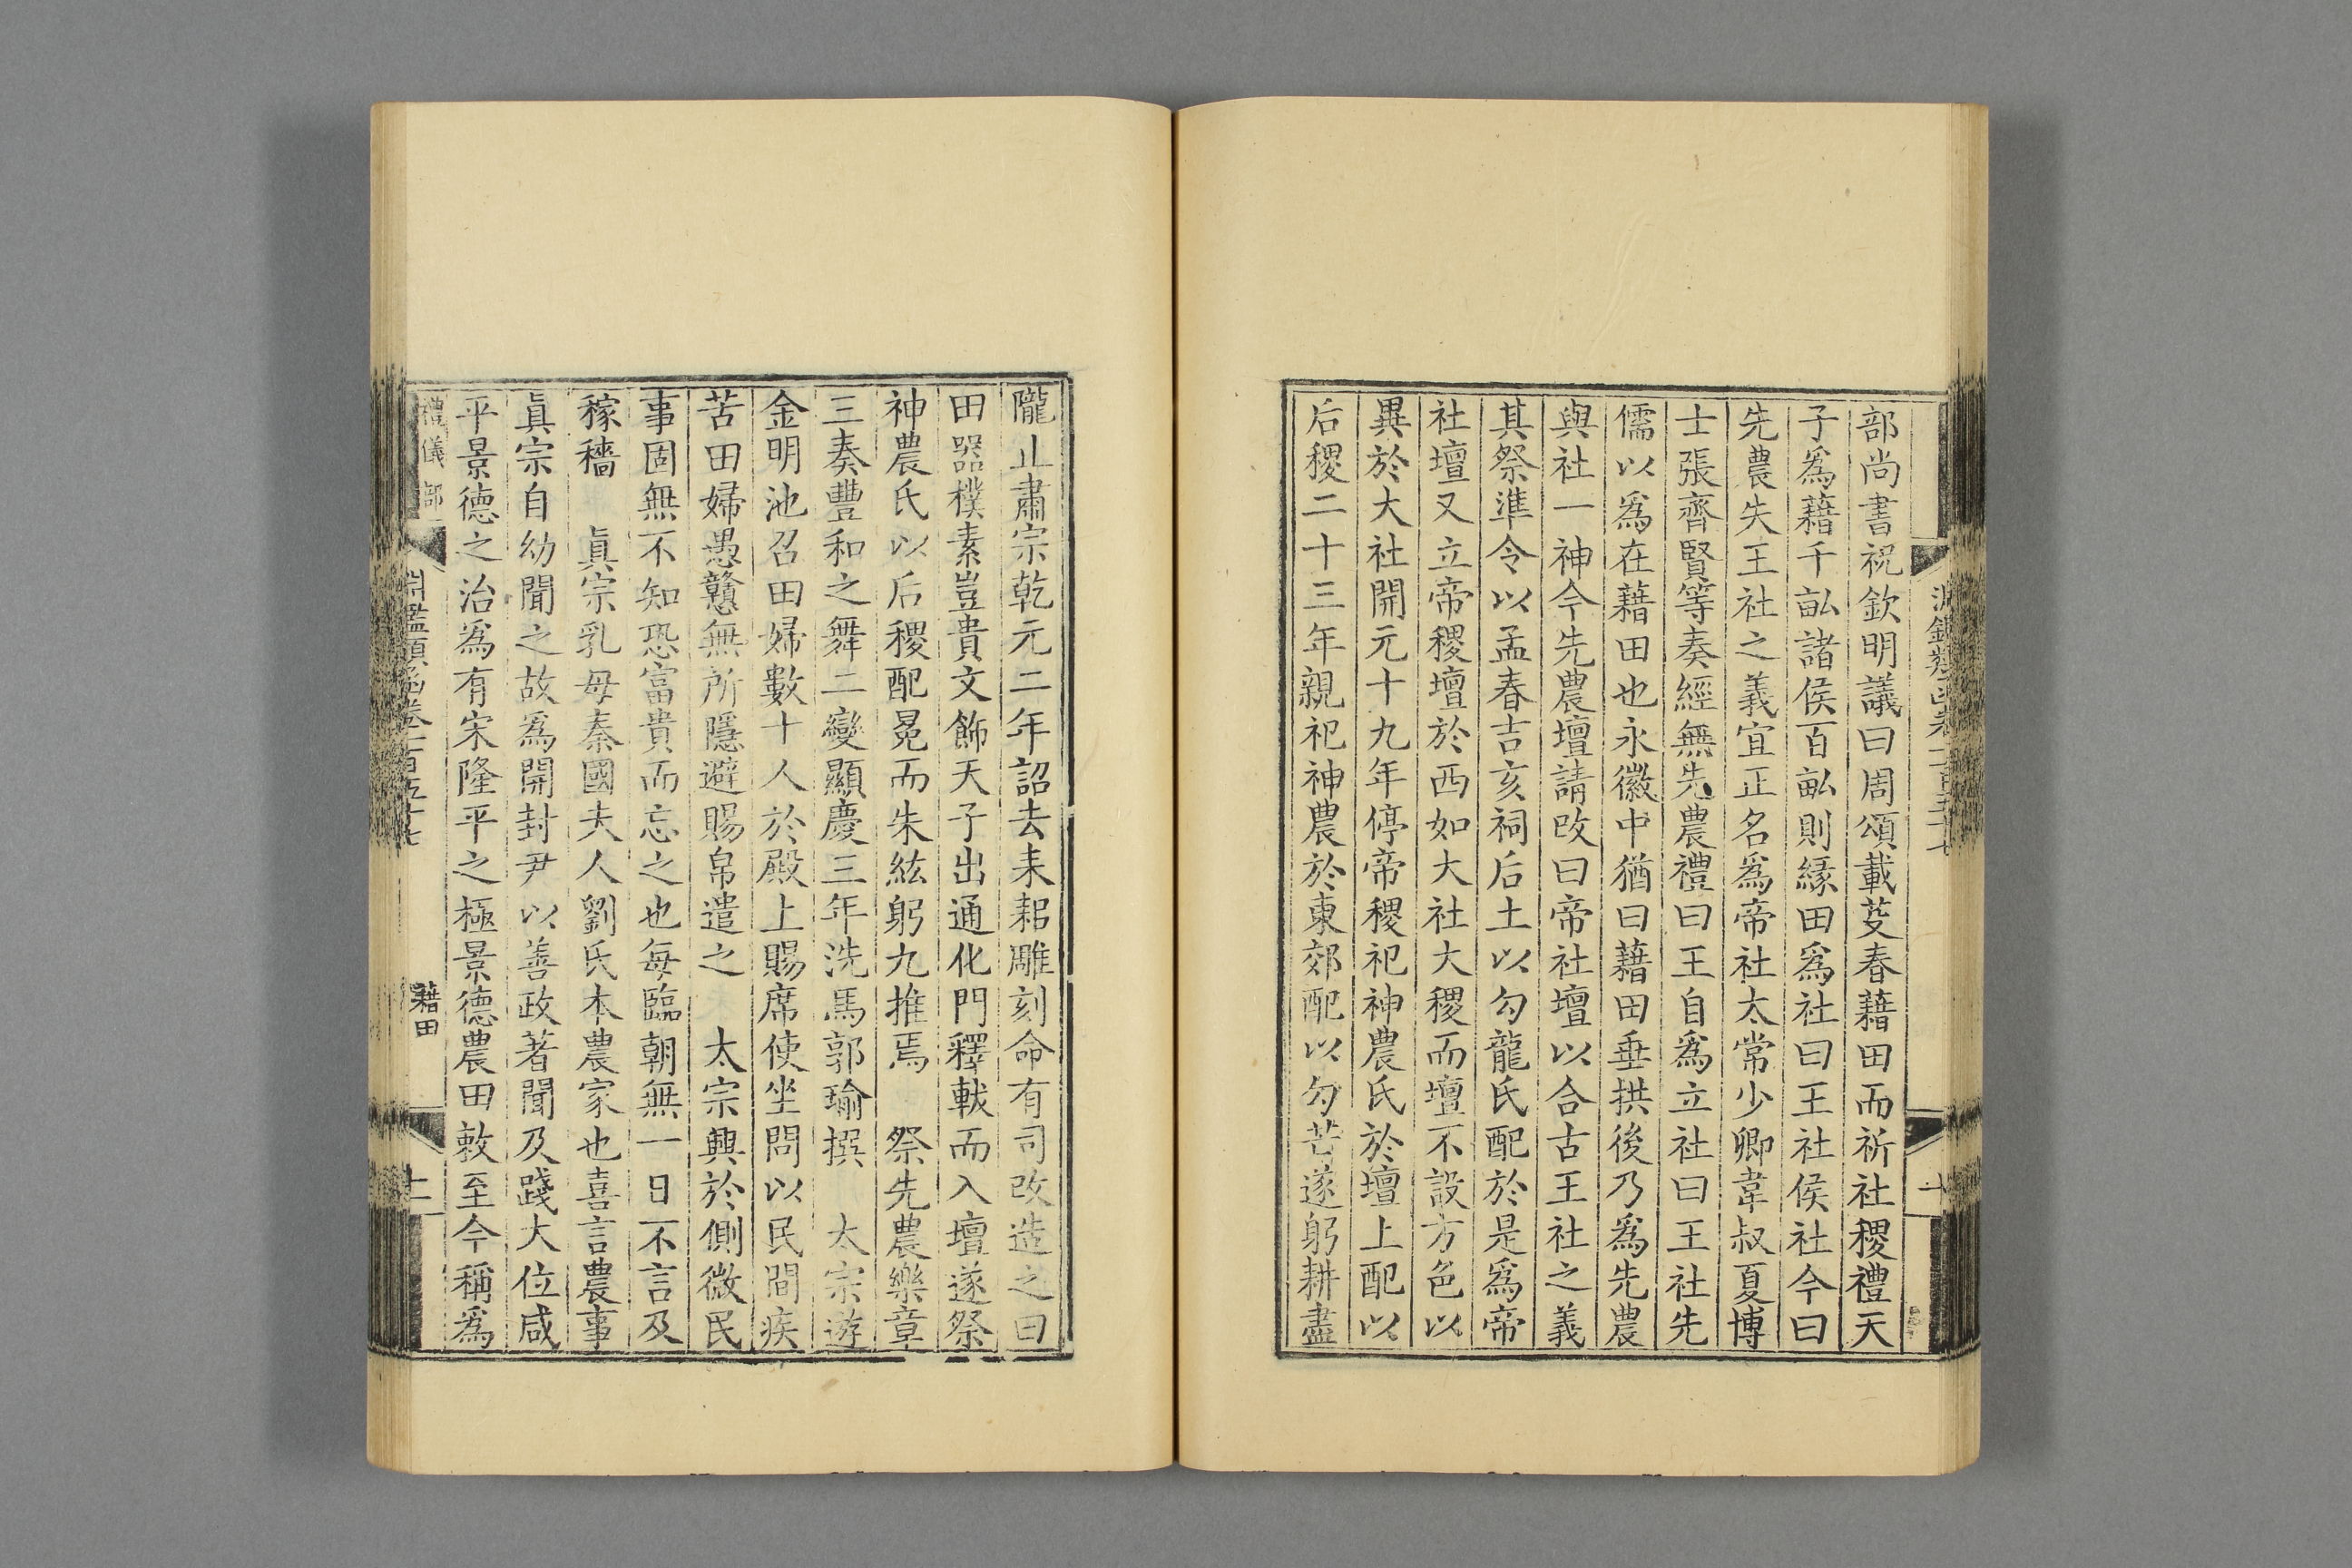 部尚書祝欽明議曰周頌載芟春藉田而祈社稷禮天
子爲藉千畝諸侯百畝則緣田爲社曰王社侯社今曰
先農失王社之義宜正名爲帝社太常少卿韋叔夏博
士張齊賢等奏經無先農禮曰王自爲立社曰王社先
儒以爲在藉田也永徽中猶曰藉田垂拱後乃爲先農
與社一神今先農壇請改曰帝社壇以合古王社之義
其祭準令以孟春吉亥祠后土以勾龍氏配於是爲帝
社壇又立帝稷壇於西如大社大稷而壇不設方色以
異於大社開元十九年停帝稷祀神農氏於壇上配以
后稷二十三年親祀神農於東郊配以勾芒遂躬耕盡
隴止肅宗乾元二年詔去耒耜雕刻命有司改造之曰
田器樸素豈貴文飾天子出通化門釋軷而入壇遂祭
神農氏以后稷配冕而朱紘躬九推焉　祭先農樂章
三奏豐和之舞二變顯慶三年洗馬郭瑜撰　太宗遊
金明池召田婦數十人於殿上賜席使坐問以民間疾
苦田婦愚戇無所隱避賜帛遣之　太宗興於側微民
事固無不知恐富貴而忘之也每臨朝無一日不言及
稼穡　眞宗乳母秦國夫人劉氏本農家也喜言農事
眞宗自幼聞之故爲開封尹以善政著聞及踐大位咸
平景德之治爲有宋隆平之極景德農田敕至今稱爲
禮儀部　淵鑑類函卷一百五十七　藉田　十一